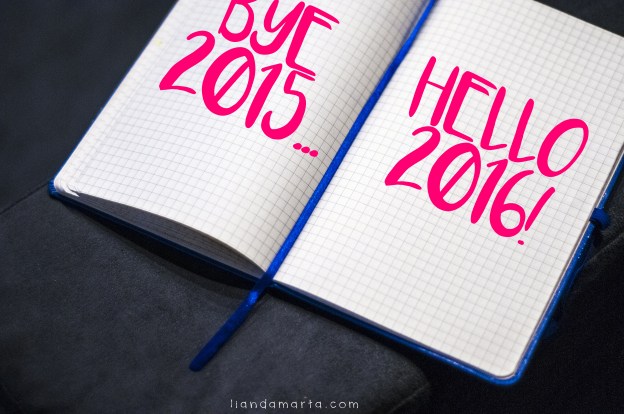 BYE
2015...
HELLO
2016!
liandamarta.com